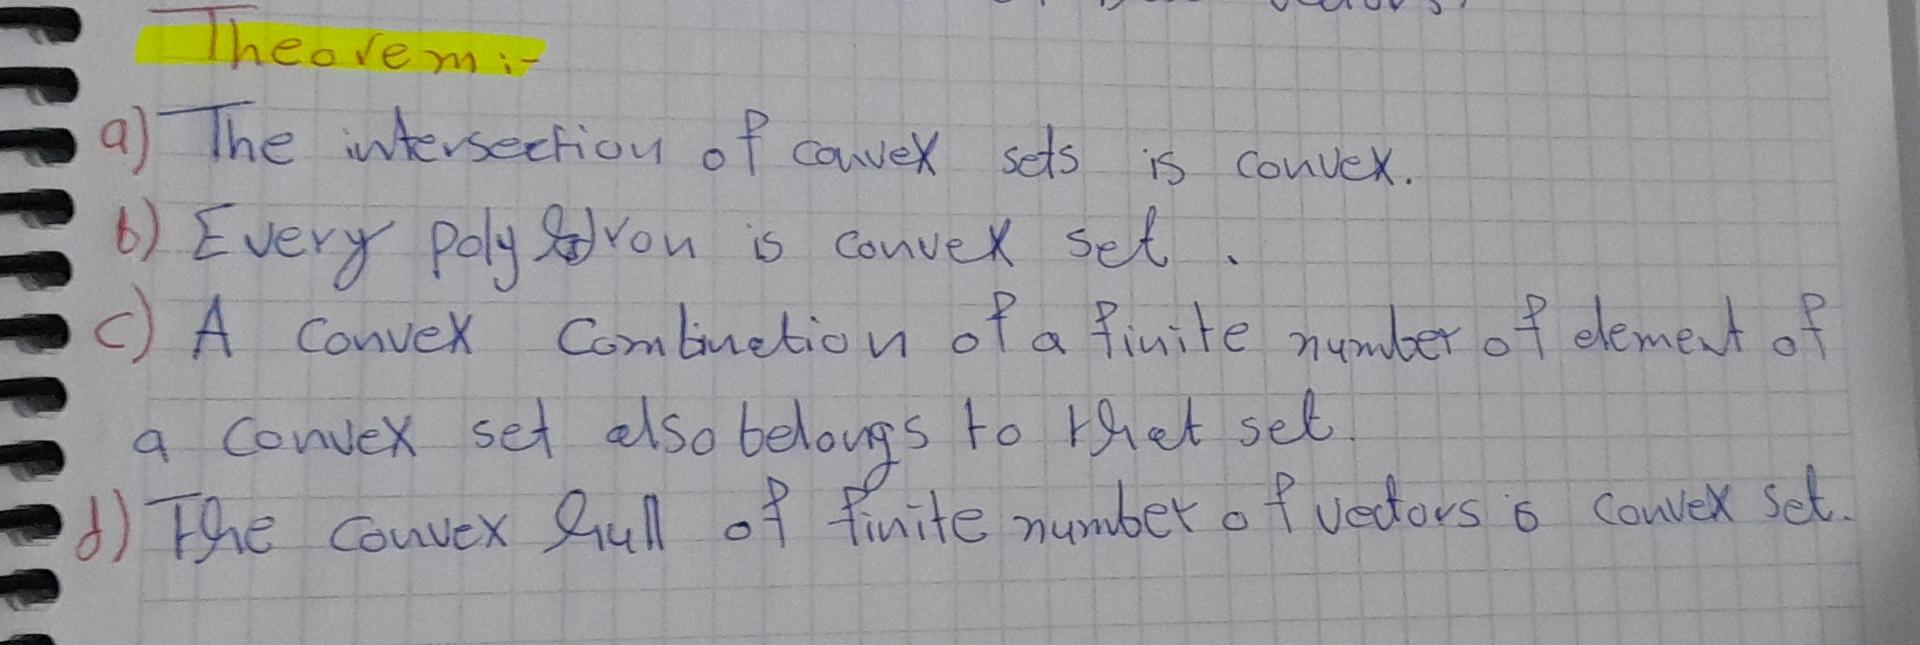 Theorem:-
a) The intersection of convex sets is convex.
b) Every polyedron is convex set.
c) A convex combination of a finite number of element of
a convex set also belongs to that set.
d) The convex hull of finite number of vectors is convex set.